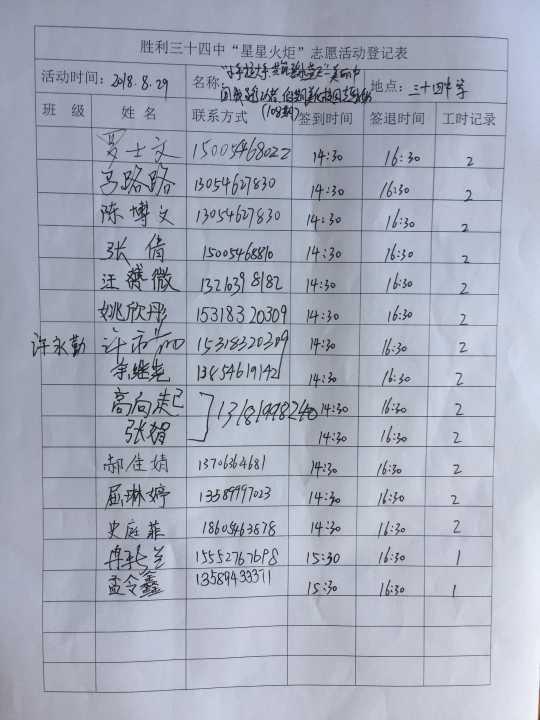 胜利三十四中“星星火炬”志愿活动登记表
活动时间：2018.8.29 名称： 地点：三十四中等
(108期)
班 级 姓 名 联系方式 签到时间 签退时间 工时记录
士文 15005468022 14:30 16:30 2
马路路 13054627830 14:30 16:30 2
陈博文 13054627830 14:30 16:30 2
张倩 15005468810 14:30 16:30 2
汪 微 1321639 8182 14:30 16:30 2
姚欣彤 15318320309 14:30 16:30 2
许永勤 许 15318320309 14:30 16:30 2
余继尧 13854619142 14:30 16:30 2
高向起 13181998240 14:30 16:30 2
张娟 14:30 16:30 2
郝佳婧 13706364681 14:30 16:30 2
屈琳婷 13589997023 14:30 16:30 2
史庭菲 18605463878 14:30 16:30 2
15552767698 15:30 16:30 1
孟令鑫 13589433311 15:30 16:30 1